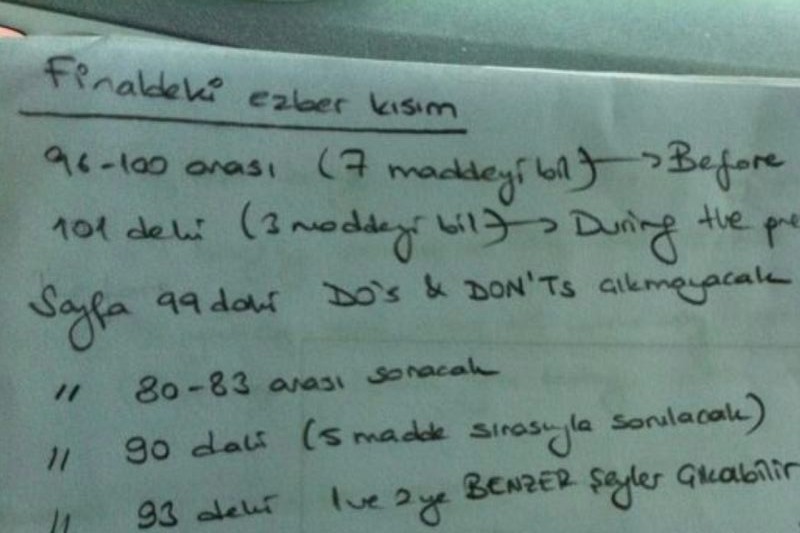 Finaldeki ezber kısım
96-100 arası (7 maddeyi bil) → Before
101 deki (3 maddeyi bil) → During the pre
Sayfa 99 daki DO's & DON'Ts çıkmayacak
" 80-83 arası soracak
" 90 daki (5 madde sırasıyla sorulacak)
" 93 deki 1 ve 2 ye BENZER şeyler çıkabilir